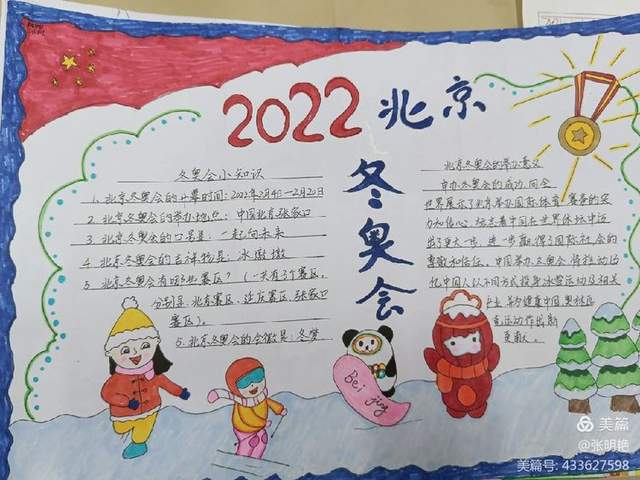 2022 北京
冬奥会
冬奥会小知识
1、北京冬奥会的上幕时间：2022年2月4日-2月20日
2、北京冬奥会的举办地点：中国北京张家口
3、北京冬奥会的口号是：一起向未来
4、北京冬奥会的吉祥物是：冰墩墩
5、北京冬奥会有哪些赛区？（一共有3个赛区，
分别是：北京赛区、延庆赛区、张家口
赛区）。
6、北京冬奥会的会徽是：冬梦
北京冬奥会的举办意义
申办冬奥会的成功，向全
世界展示了北京举办国际体育赛事的实
力和信心，标志着中国在世界体坛中迈
出了更大一步，进一步取得了国际社会的
尊敬和信任。中国举办冬奥会，将推动
中国人以不同方式投身冰雪运动及相关
产业，
Bei jing
美篇
@张明艳
美篇号: 433627598